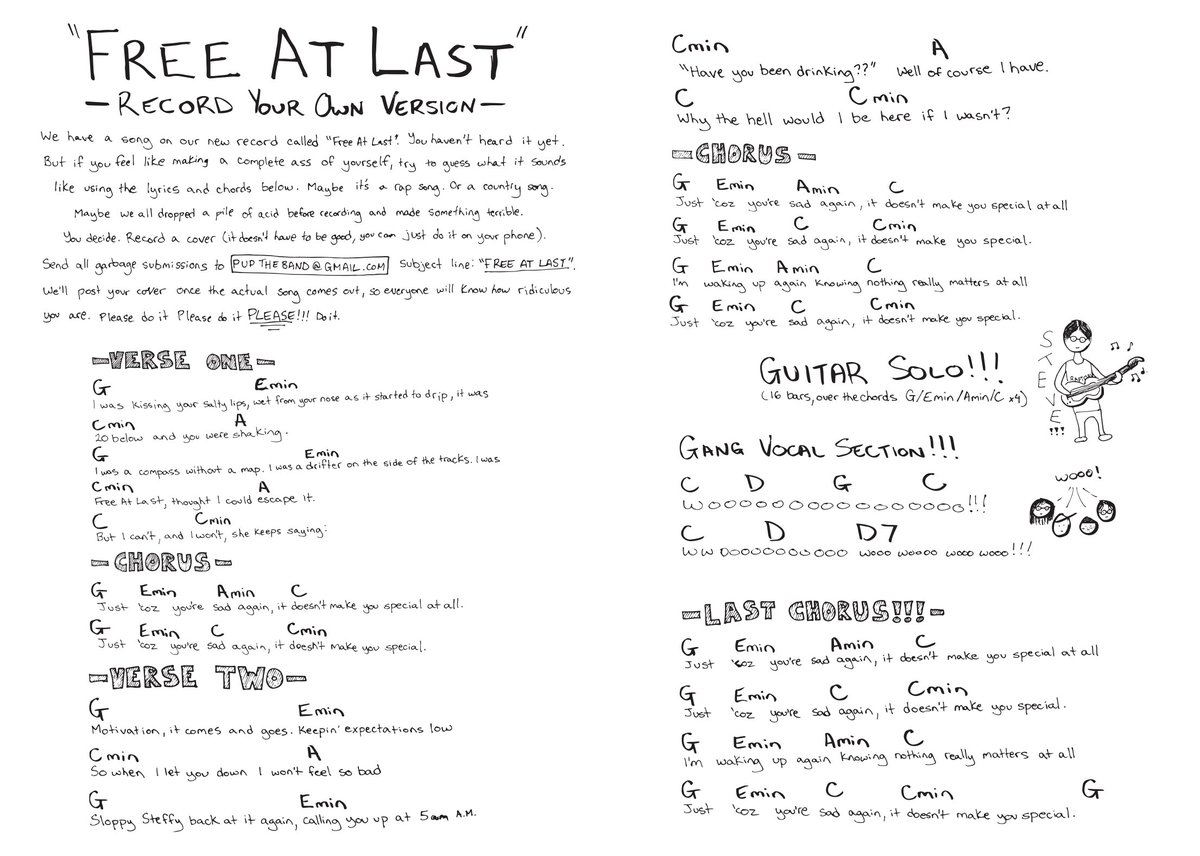 "FREE AT LAST"
— RECORD YOUR OWN VERSION —
We have a song on our new record called "Free At Last". You haven't heard it yet.
But if you feel like making a complete ass of yourself, try to guess what it sounds
like using the lyrics and chords below. Maybe it's a rap song. Or a country song.
Maybe we all dropped a pile of acid before recording and made something terrible.
You decide. Record a cover (it doesn't have to be good, you can just do it on your phone).
Send all garbage submissions to PUPTHEBAND@GMAIL.COM Subject line: "FREE AT LAST".
We'll post your cover once the actual song comes out, so everyone will know how ridiculous
you are. Please do it Please do it PLEASE!!! Do it.
—VERSE ONE—
G Emin
I was kissing your salty lips, wet from your nose as it started to drip, it was
Cmin A
20 below and you were shaking.
G Emin
I was a compass without a map. I was a drifter on the side of the tracks. I was
Cmin A
Free At Last, thought I could escape it.
C Cmin
But I can't, and I won't, she keeps saying:
—CHORUS—
G Emin Amin C
Just 'coz you're sad again, it doesn't make you special at all.
G Emin C Cmin
Just 'coz you're sad again, it doesn't make you special.
—VERSE TWO—
G Emin
Motivation, it comes and goes. Keepin' expectations low
Cmin A
So when I let you down I won't feel so bad
G Emin
Sloppy Steffy back at it again, calling you up at 5am A.M.
Cmin A
"Have you been drinking??" Well of course I have.
C Cmin
Why the hell would I be here if I wasn't?
—CHORUS—
G Emin Amin C
Just 'coz you're sad again, it doesn't make you special at all
G Emin C Cmin
Just 'coz you're sad again, it doesn't make you special.
G Emin Amin C
I'm waking up again knowing nothing really matters at all
G Emin C Cmin
Just 'coz you're sad again, it doesn't make you special.
GUITAR SOLO!!!
(16 bars, over the chords G/Emin/Amin/C x4)
STEVE!!!
GANG VOCAL SECTION!!!
C D G C
WOOOOOOOOOOOOOOOOO!!!
wooo!
C D D7
WWOOOOOOOOOO wooo woooo wooo wooo!!!
—LAST CHORUS!!!—
G Emin Amin C
Just 'coz you're sad again, it doesn't make you special at all
G Emin C Cmin
Just 'coz you're sad again, it doesn't make you special.
G Emin Amin C
I'm waking up again knowing nothing really matters at all
G Emin C Cmin G
Just 'coz you're sad again, it doesn't make you special.